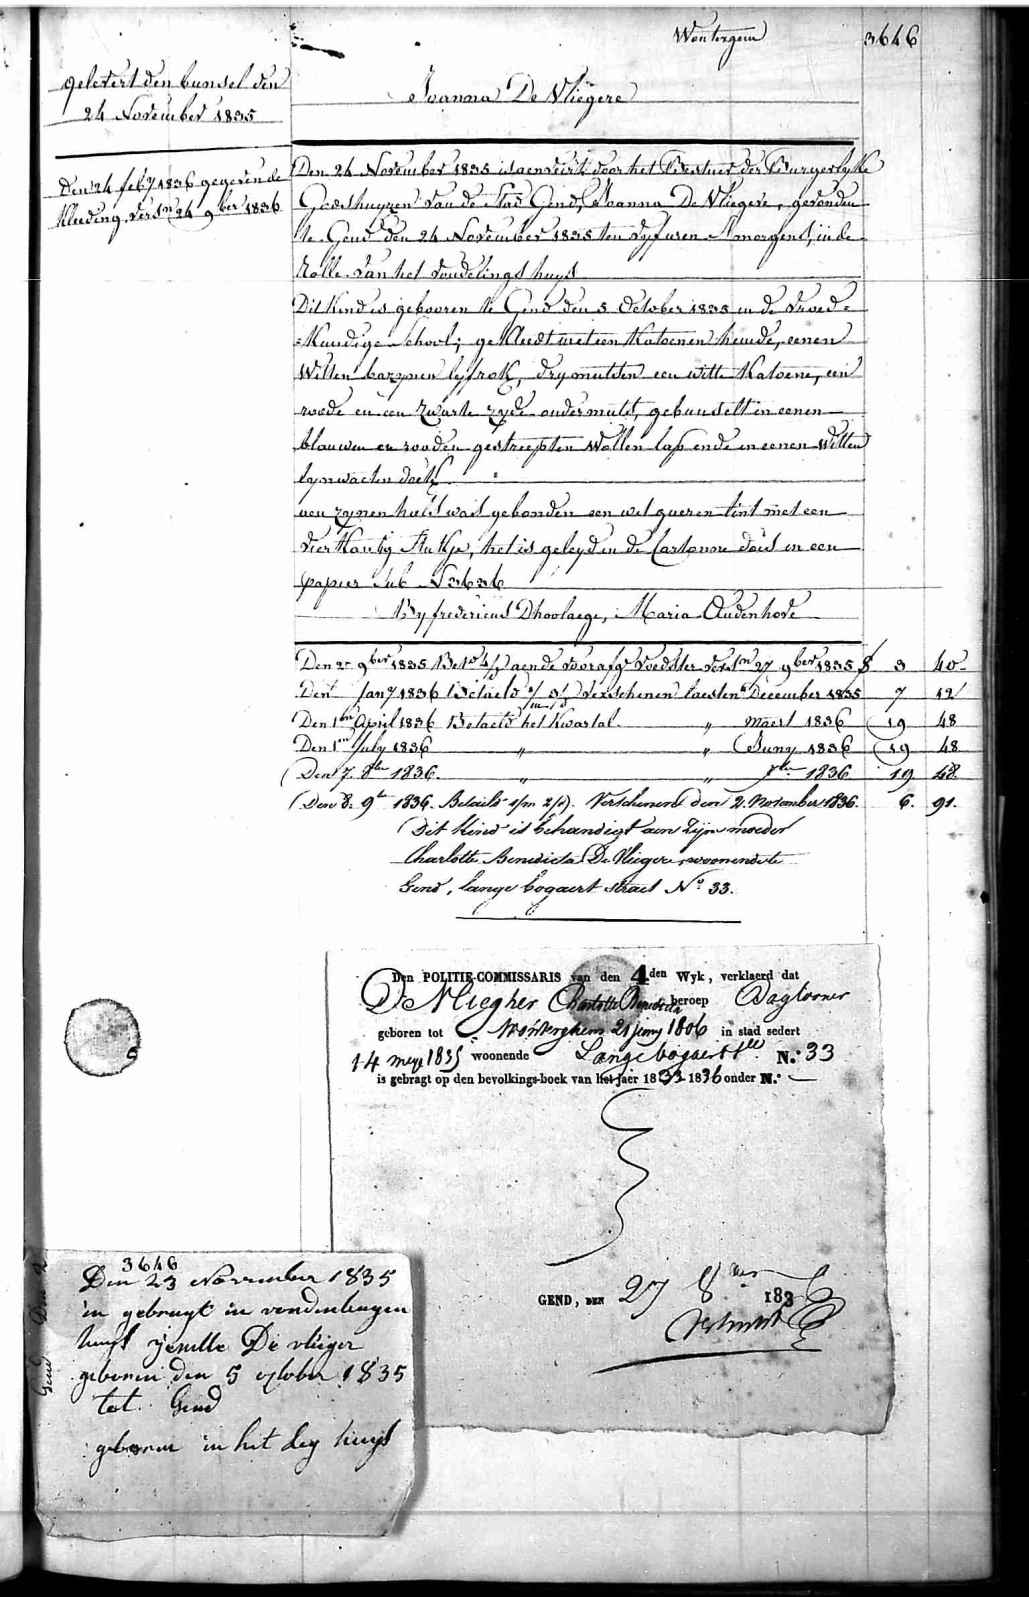 Wontergem 3646
gelevert den bunsel den
24 November 1835
Joanna De Vliegere
Den 24 feby 1836 gegeven de
kleeding, versn 24 9ber 1836
Den 24 November 1835 is aenveirt door het Bestuer der Burgerlyke
Godshuyzen van de Stad Gend, Joanna De Vliegere, gevonden
te Gend den 24 November 1835 ten vyf uren s'morgens, in de
Rolle van het vondelings huys
Dit kind is gebooren te Gend den 5 October 1835 in de vroed=
=kundige School; gekleedt met een katoenen hemde, eenen
witten bazynen lyfrok, dry mutsen een witte katoene, een
roode en een zwarte zyde ondermuts, gebunselt in eenen
blauwen en rooden gestreepten wollen lap ende in eenen witten
lynwaeten doek
aen zynen hals was gebonden een lint met een
vierkantig stukje, het is geleyd in de Cartonne doos in een
papier sub N 3646
By fredericus Dhoolaege, Maria Oudenhove
Den 2n 9ber 1835 Bet aen de voorafge voedster versn 27 9ber 1835 8 3 40
Den Jany 1836 Betaeld verschenen laesten December 1835 7 12
Den 1en April 1836 Betaeld het kwartal " maert 1836 19 48
Den 1en July 1836 " " Juny 1836 19 48
Den 7. 8ber 1836. " " 7ber 1836 19 48
Den 8. 9r 1836. Betaelt 1/m 2/d. Verschenen den 2. November 1836. 6. 91.
Dit kind is behandigt aen zijn moeder
Charlotte Benedicta De Vliegere, woonende te
Gend, lange bogaert straet No 33.
Den POLITIE-COMMISSARIS van den 4den Wyk, verklaerd dat
De Vliegher Charlotte Benedicta beroep Daglooner
geboren tot Wonterghem 21 juny 1806 in stad sedert
14 mey 1835 woonende Lange bogaert N.° 33
is gebragt op den bevolkings-boek van het jaer 1835 1836 onder N.° —
GEND, DEN 27 8ber 183
3646
Den 23 November 1835
in gebragt in vondenlingen
huys De vlieger
geboren den 5 october 1835
tot Gend
geboren in het huys